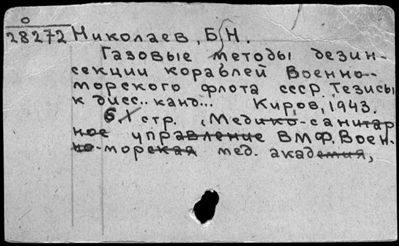 О
28272 Николаев, Б.Н.
Газовые методы дезин-
секции кораблей Военно-
морского флота СССР. Тезисы
к дисс.. канд... Киров, 1943.
6 стр. (Медико-санитар
ное управление ВМФ. Воен-
но-морская мед. академия,